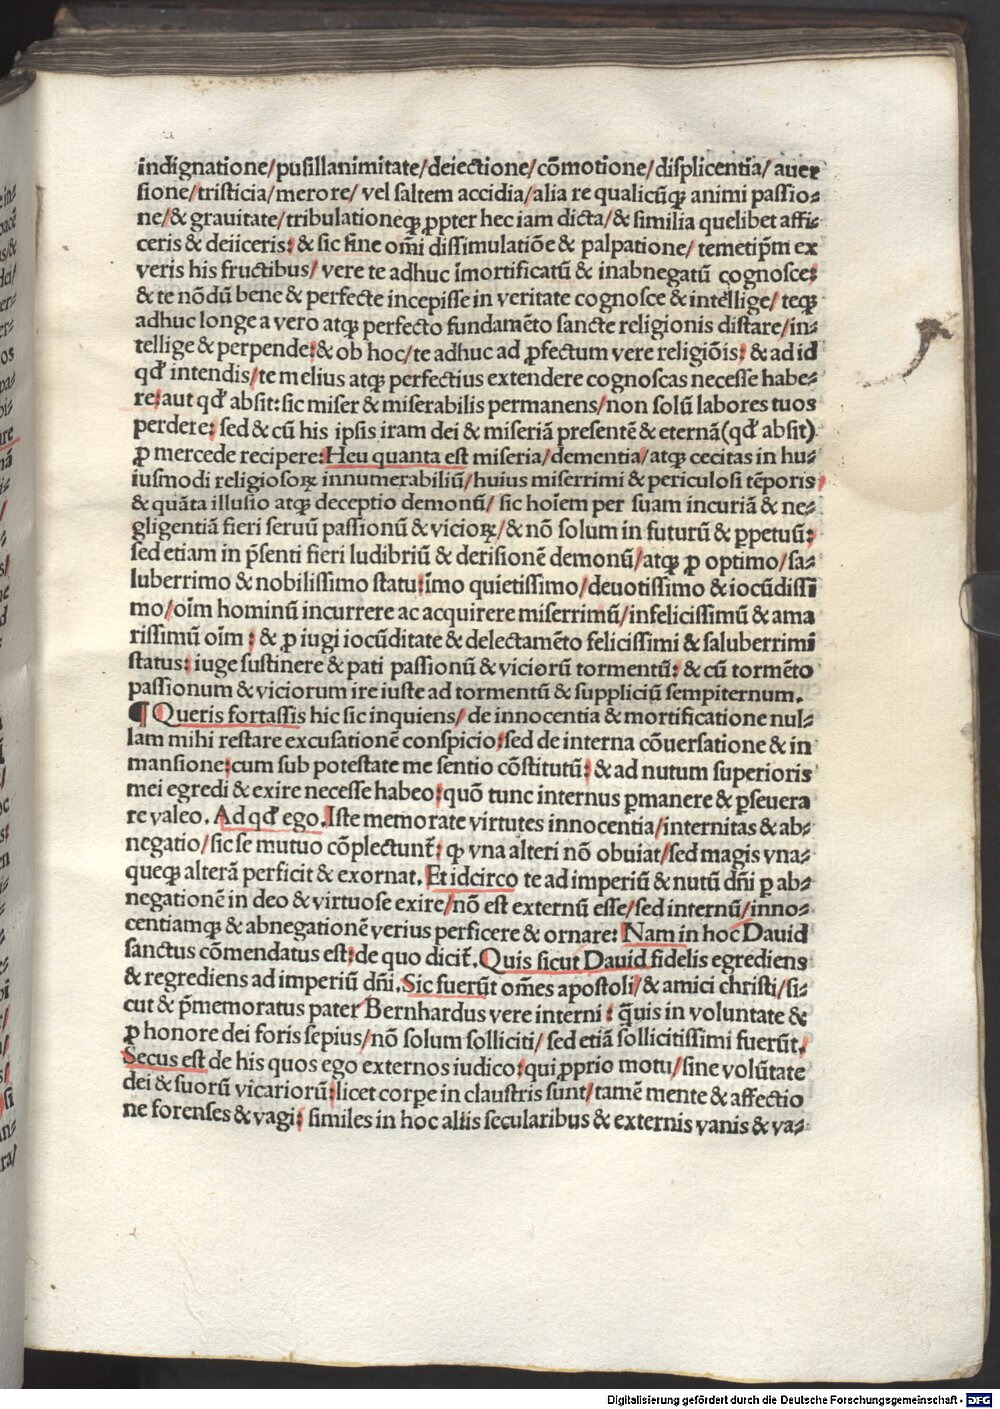 indignatione/pusillanimitate/deiectione/cōmotione/displicentia/ auer
sione/tristicia/merore/ vel saltem accidia/alia re qualicūqꝫ animi passio⸗
ne/& grauitate/tribulationeqꝫ ꝓpter hec iam dicta/& similia quelibet affi⸗
ceris & deiiceris: & sic sine om̄i dissimulatiōe & palpatione/ temetip̄m ex
veris his fructibus/ vere te adhuc īmortificatū & inabnegatū cognosce:
& te nōdū bene & perfecte incepisse in veritate cognosce & intellige/ teqꝫ
adhuc longe a vero atqꝫ perfecto fundamēto sancte religionis distare/in⸗
tellige & perpende:& ob hoc/te adhuc ad ꝓfectum vere religiōis: & ad id
qd' intendis/te melius atqꝫ perfectius extendere cognoscas necesse habe⸗
re:aut qd' absit:sic miser & miserabilis permanens/non solū labores tuos
perdere: sed & cū his ipsis iram dei & miseriā presentē & eternā(qd' absit)
ꝓ mercede recipere:Heu quanta est miseria/dementia/atqꝫ cecitas in hu⸗
iusmodi religiosoꝝ innumerabiliū/huius miserrimi & periculosi tēporis
& quāta illusio atqꝫ deceptio demonū/ sic hoīem per suam incuriā & ne⸗
gligentiā fieri seruū passionū & vicioꝝ/& nō solum in futurū & ꝑpetuū:
sed etiam in p̄senti fieri ludibriū & derisionē demonū/atqꝫ ꝓ optimo/sa⸗
luberrimo & nobilissimo statu:īmo quietissimo/deuotissimo & iocūdissi
mo/oīm hominū incurrere ac acquirere miserrimū/infelicissimū & ama
rissimū oīm : & ꝓ iugi iocūditate & delectamēto felicissimi & saluberrimi
status: iuge sustinere & pati passionū & viciorū tormentū: & cū tormēto
passionum & viciorum ire iuste ad tormentū & suppliciū sempiternum.
¶ Queris fortassis hic sic inquiens/ de innocentia & mortificatione nul⸗
lam mihi restare excusationē conspicio:sed de interna cōuersatione & in
mansione:cum sub potestate me sentio cōstitutū: & ad nutum superioris
mei egredi & exire necesse habeo:quō tunc internus ꝑmanere & ꝑseuera
re valeo. Ad qd' ego.Iste memorate virtutes innocentia/internitas & ab⸗
negatio/sic se mutuo cōplectunt̄: qꝫ vna alteri nō obuiat/sed magis vna⸗
queqꝫ alterā perficit & exornat. Et idcirco te ad imperiū & nutū dn̄i ꝑ ab⸗
negationē in deo & virtuose exire/nō est externū esse/sed internū/inno⸗
centiamqꝫ & abnegationē verius perficere & ornare: Nam in hoc Dauid
sanctus cōmendatus est:de quo dicit̄.Quis sicut Dauid fidelis egrediens
& regrediens ad imperiū dn̄i.Sic fuerūt om̄es apostoli/& amici christi/si⸗
cut & p̄memoratus pater Bernhardus vere interni : q̄uis in voluntate &
ꝓ honore dei foris sepius/nō solum solliciti/ sed etiā sollicitissimi fuerūt.
Secus est de his quos ego externos iudico:qui ꝓprio motu/sine volūtate
dei & suorū vicariorū:licet corpe in claustris sunt/tamē mente & affectio
ne forenses & vagi: similes in hoc aliis secularibus & externis vanis & va⸗
Digitalisierung gefördert durch die Deutsche Forschungsgemeinschaft - DFG